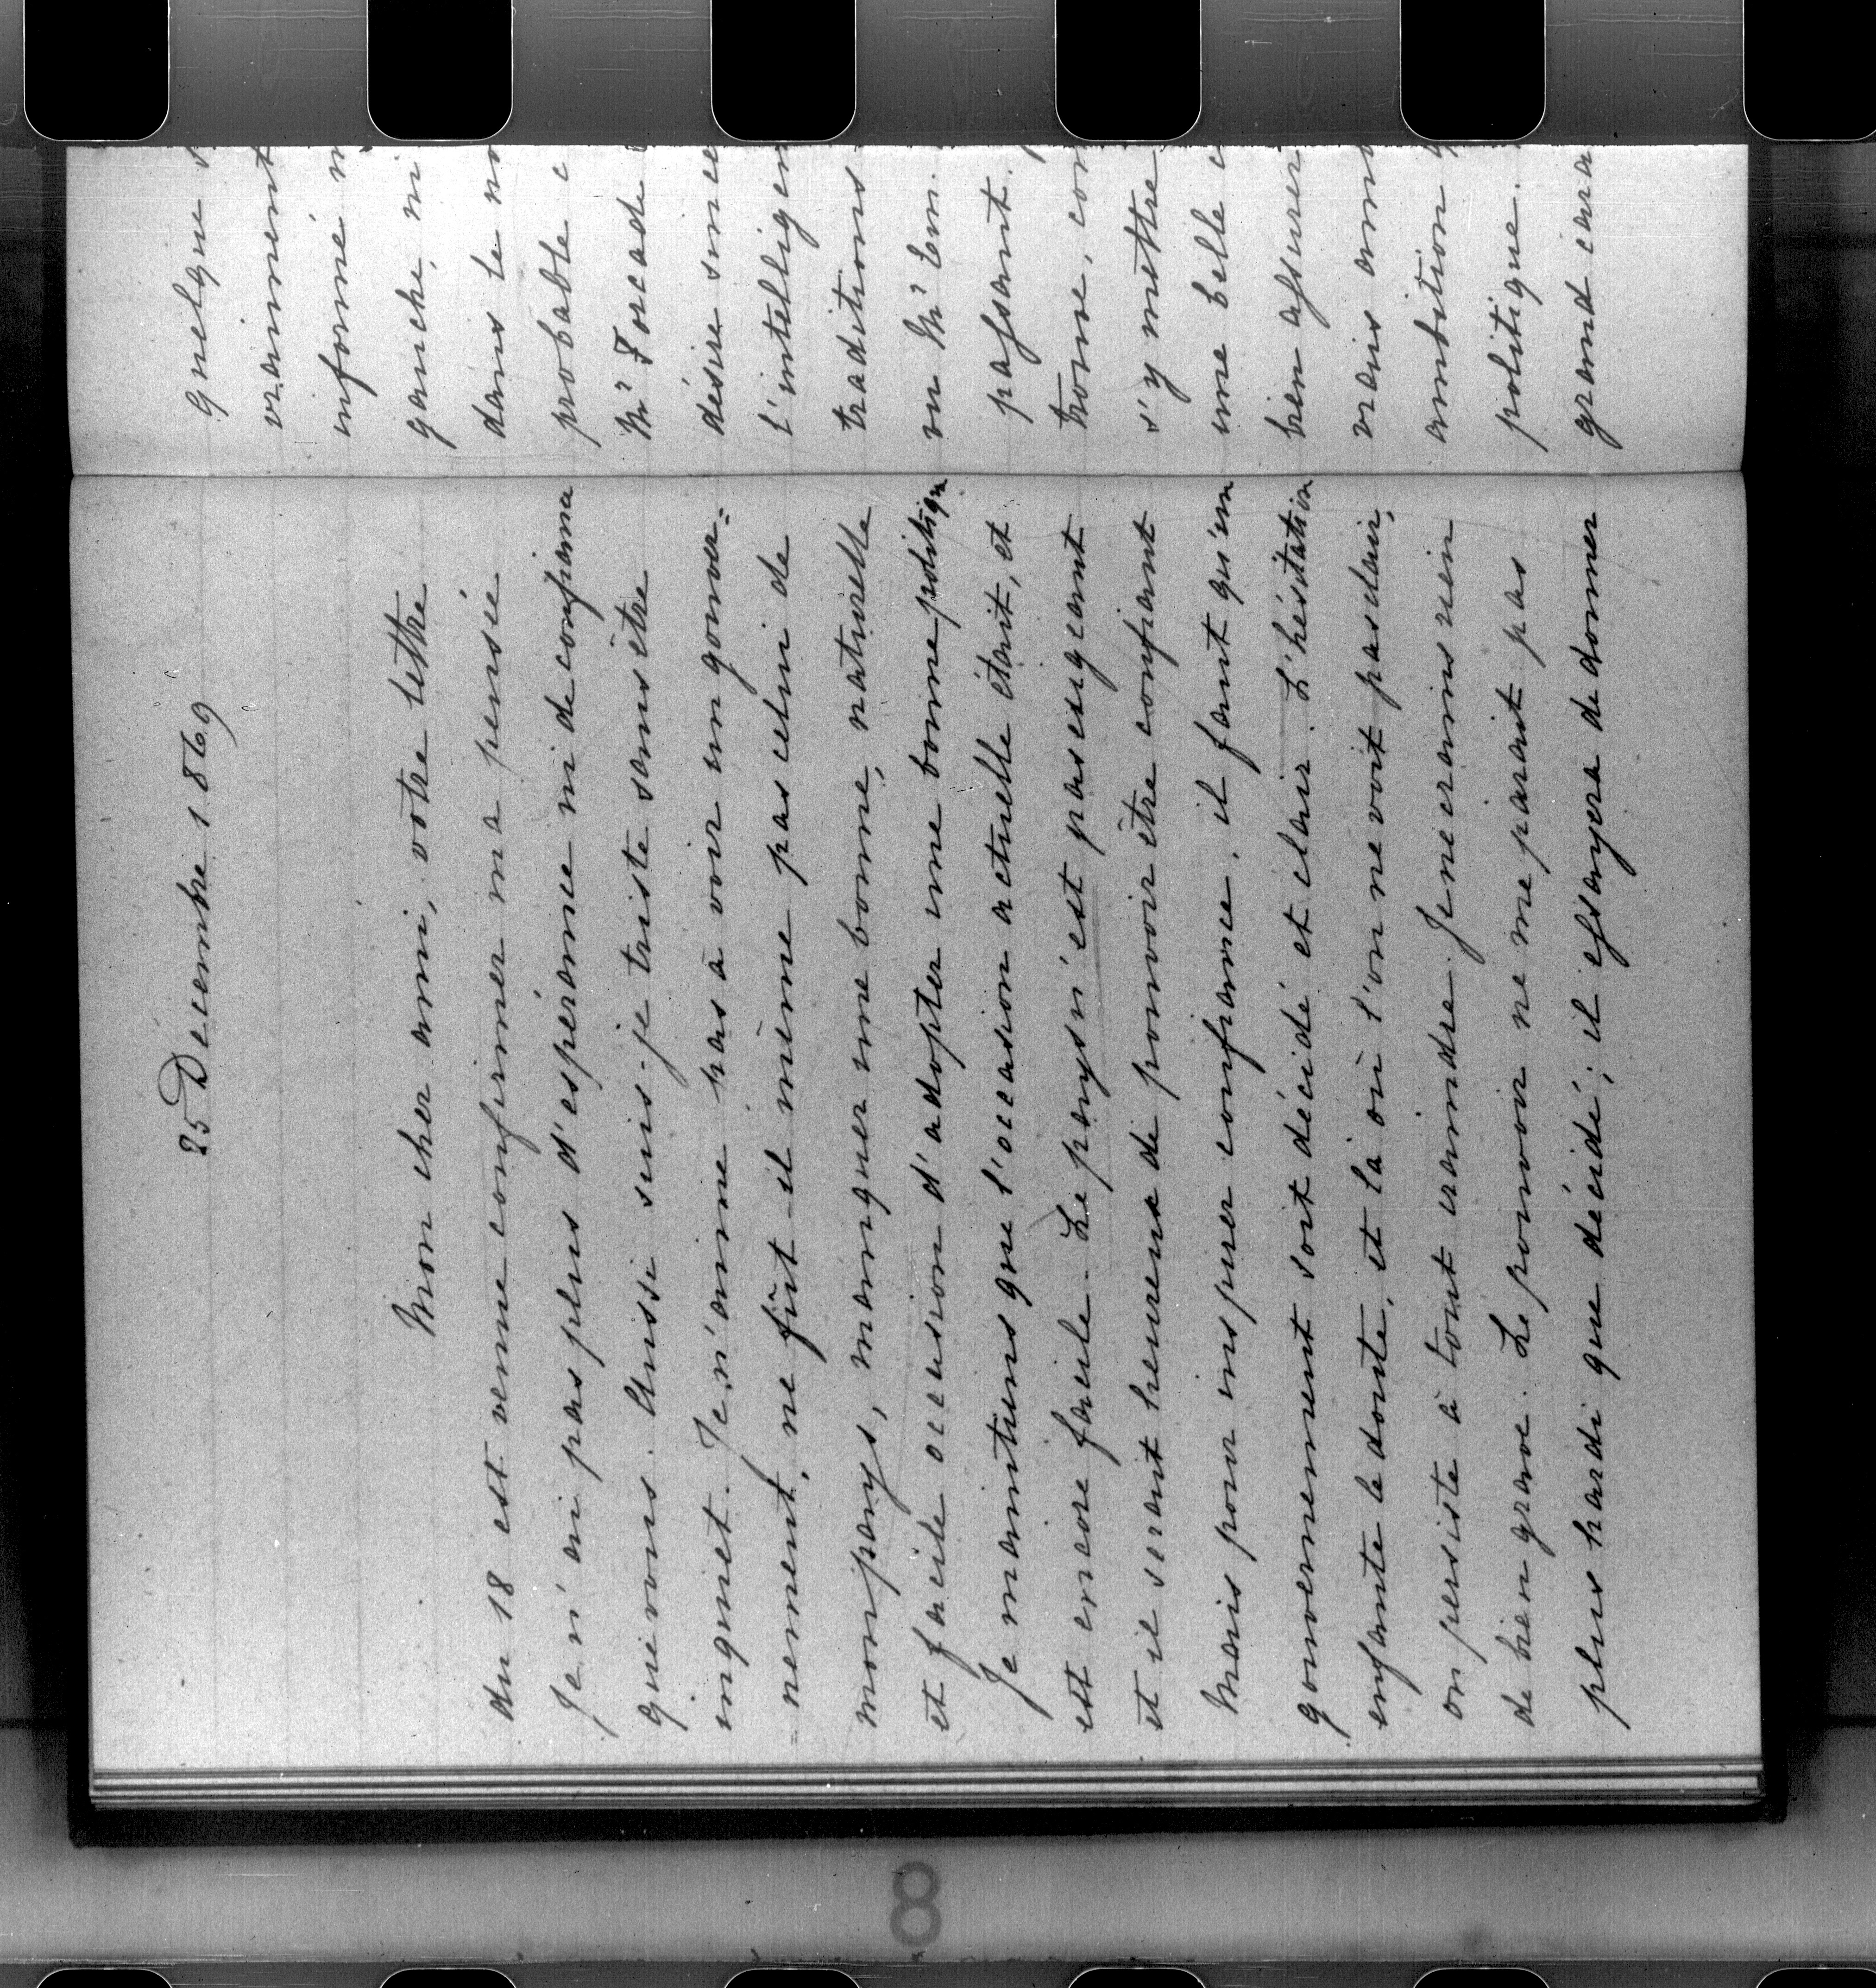 25 Décembre 1869
Mon cher ami, votre lettre
du 18 est venue confirmer ma pensée
Je n'ai pas plus d'espérance ni de confiance
que vous. Aussi suis-je triste sans être
inquiet. Je n'aime pas à voir un gouver=
nement, ne fût-il même pas celui de
mon pays, manquer une bonne, naturelle
et facile occasion d'adopter une bonne politique
Je maintiens que l'occasion actuelle était, et
est encore facile. Le pays n'est pas exigeant
et il serait heureux de pouvoir être confiant
Mais pour inspirer confiance, il faut qu'un
gouvernement soit décidé et clair. L'hésitation
enfante le doute, et là où l'on ne voit pas clair,
on persiste à tout craindre. Je ne crains rien
de bien grave. Le pouvoir ne me paraît pas
plus hardi que décidé; il essayera de donner
quelque s
vraiment
informé n
gauche, ni
dans le no
probable c
Mr Forcade
désire since
l'intelligen
traditions
ou Mr Em.
passant.
trône, con
s'y mettre
une belle c
bien assurer
vrais amb
ambition q
politique.
grand cara
8